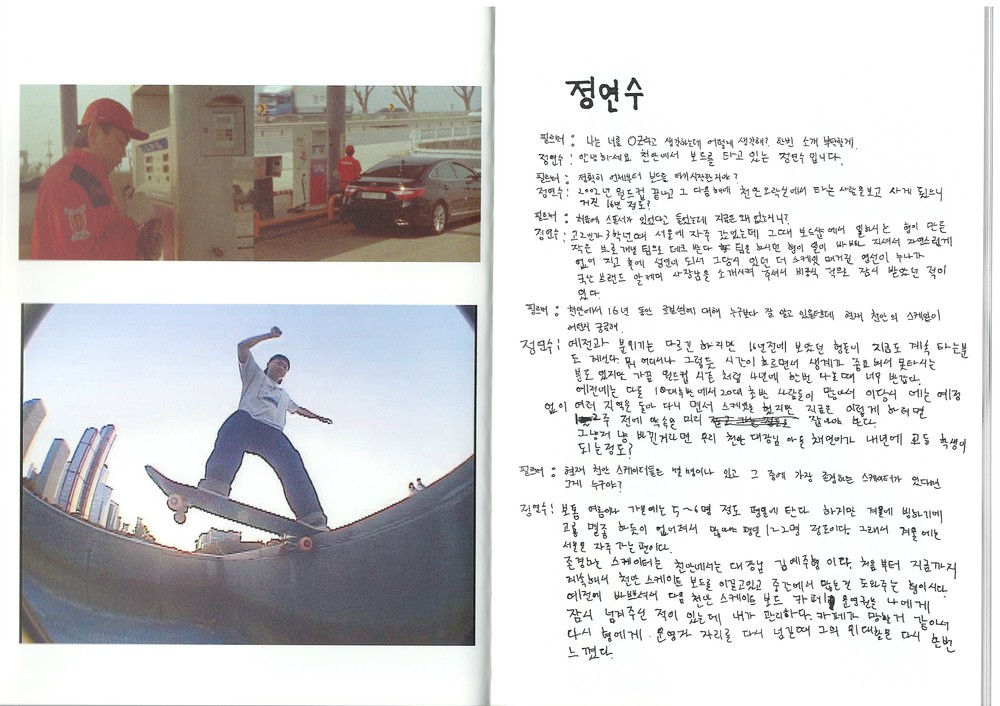 정연수
필르머 : 나는 너를 OZ라고 생각하는데 어떻게 생각해? 한번 소개 부탁할게.
정연수 : 안녕하세요 천안에서 보드를 타고 있는 정연수 입니다.
필르머 : 정확히 언제부터 보드를 타기시작한거야?
정연수 : 2002년 월드컵 끝나고 그 다음해에 천안오락실에서 타는 사람을보고 사게 됬으니
거진 16년 정도?
필르머 : 처음에 스폰서가 있었다고 들었는데 지금은 왜 없는거니?
정연수 : 고2인가 3학년때 서울에 자주 갔었는데 그때 보드샵에서 일하시는 형이 만든
작은 브로개발 팀으로 데크 받다 팀을 하시던 형이 일이 바빠 지셔서 자연스럽게
없어 지고 후에 성인이 되서 그당시 있던 더 스케잇 매거진 영선이 누나가
국산 브랜드 알케미 사장님을 소개시켜 주셔서 비공식 적으로 잠시 받았던 적이
있다.
필르머 : 천안에서 16년 동안 로컬씬에 대해 누구보다 잘 알고 있을텐데 현재 천안의 스케잇씬이
어떤지 궁금해.
정연수 : 예전과 분위기는 다르긴 하지만 16년전에 보았던 형들이 지금도 계속 타는분
도 계신다 뭐 어디서나 그렇듯 시간이 흐르면서 생계가 중요해서 못타시는
분도 있지만 가끔 월드컵 시즌 처럼 4년에 한번 나올때 너무 반갑다.
예전에는 다들 10대후반에서 20대 초반 사람들이 많아서 이당시 에는 예정
없이 여러 지역을 돌아 다니 면서 스케잇을 했지만 지금은 이렇게 하려면
2주 전에 약속을 미리 잡아야 한다.
그냥저냥 바뀐거라면 우리 천안 대장님 아들 채면이가 내년에 고등 학생이
되는정도?
필르머 : 현재 천안 스케이터들은 몇 명이나 있고 그 중에 가장 존경하는 스케이터가 있다면
그게 누구야?
정연수 : 보통 여름이나 가을에는 5~6명 정도 평일에 탄다 하지만 겨울에 빙하기에
공룡 멸종 하듯이 없어져서 많아야 평일 1~2명 정도이다. 그래서 겨울에는
서울을 자주 가는 편이다.
존경하는 스케이터는 천안에서는 대장님 김예주형 이다. 처음부터 지금까지
계속해서 천안 스케이트 보드를 이끌고있고 중간에서 많은걸 도와주는 형이시다.
예전에 바쁘셔서 다음 천안 스케이트 보드 카페 운영권을 나에게
잠시 넘겨주신 적이 있는데 내가 관리하다. 카페가 망할거 같아서
다시 형에게 운영자 자리를 다시 넘길때 그의 위대함을 다시 한번
느꼈다.